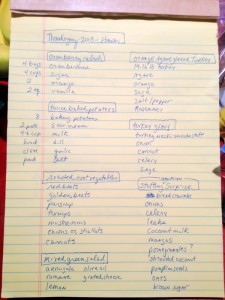 Thanksgiving 2013 - Shawn
Cranberry relish
4 bags cranberries
4 cups sugar
2 orange
2 tsp vanilla
Twice baked potatoes
8 baking potatoes
2 pints sour cream
4-6 cup milk
bunch dill
clove garlic
pack salt
roasted root vegetables
red beets
golden beets
parsnip
turnips
mushrooms
onions or shallots
carrots
Mixed green salad
arugula olive oil
romaine grated cheese
lemon
orange agave glazed Turkey
14-16 lb Turkey
Agave
orange
Sage
Salt / pepper
Rosemary
turkey gravy
turkey neck
onion
carrot
celery
sage
Stuffing Surprise
bread crumbs
onions
celery
leeks
coconut milk
mangos
pomegranates?
shredded coconut
pumpkin seeds
oats
brown sugar